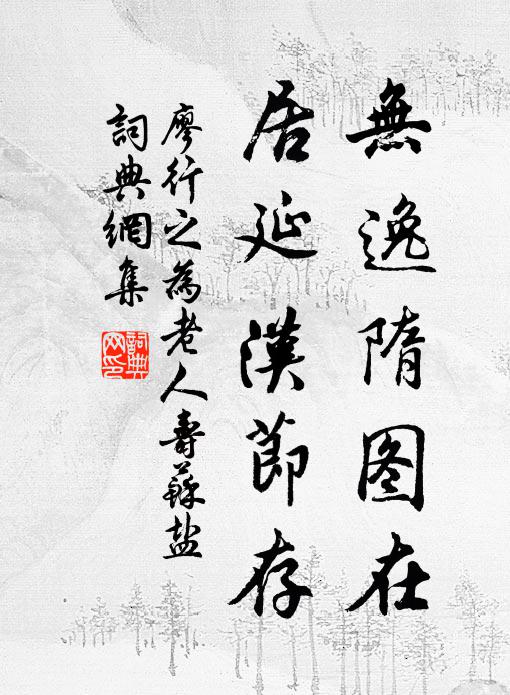 無逸隋图在
居延漢節存
廖行之為老人壽蘇盐
詞典網集
詞典网印